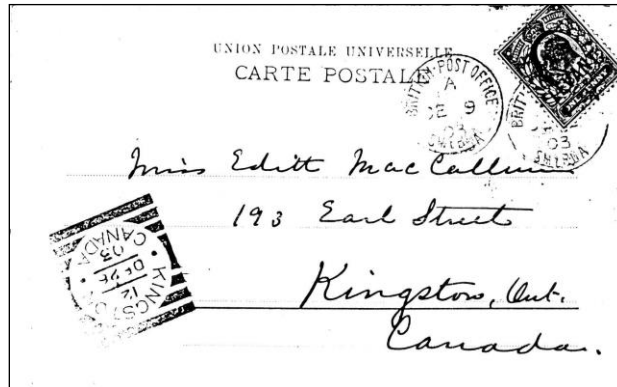 UNION POSTALE UNIVERSELLE
CARTE POSTALE
BRITISH POST OFFICE
A
DE 9
03
SMYRNA
BRITISH
03
SMYRNA
Miss Edith MacCallum
193 Earl Street
Kingston, Ont.
Canada.
KINGSTON
12
DE 26
03
CANADA